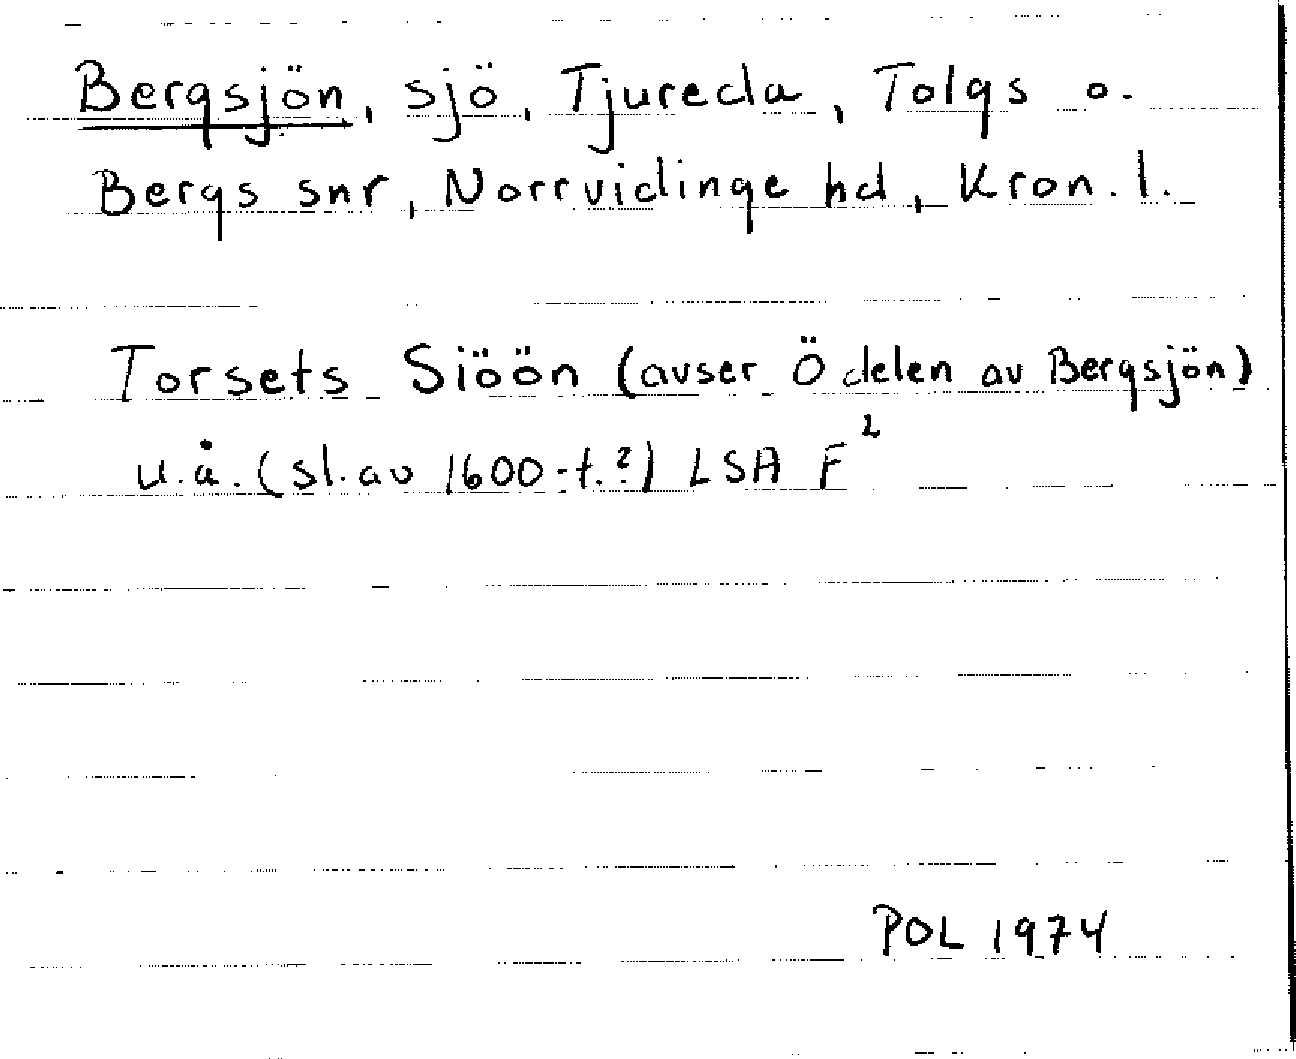 Bergsjön, sjö, Tjureda, Tolgs o.
Bergs snr, Norrvidinge hd, Kron. l.
Torsets Siöön (avser Ö delen av Bergsjön)
u.å. (sl. av 1600-t.?) LSA F²
POL 1974